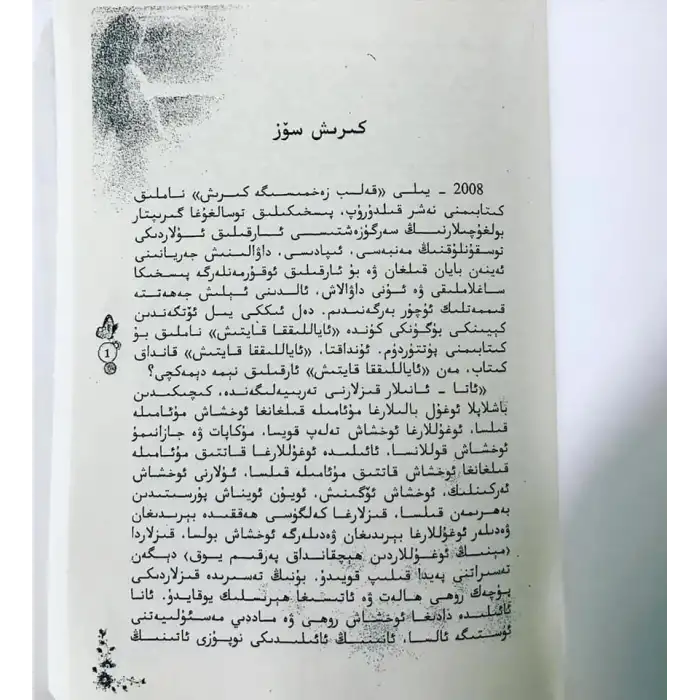 كىرىش سۆز
2008 ـ يىلى «قەلب زەخمىسىگە كىرىش» ناملىق
كىتابىمنى نەشر قىلدۇرۇپ، پسىخىكىلىق توسالغۇغا گىرىپتار
بولغۇچىلارنىڭ سەرگۈزەشتىسى ئارقىلىق ئۇلاردىكى
توسقۇنلۇقنىڭ مەنبەسى، ئىپادىسى، داۋالىنىش جەريانىنى
ئەينەن بايان قىلغان ۋە بۇ ئارقىلىق ئوقۇرمەنلەرگە پسىخىكا
ساغلاملىقى ۋە ئۇنى داۋالاش، ئالدىنى ئېلىش جەھەتتە
قىممەتلىك ئۇچۇر بەرگەنىدىم. دەل ئىككى يىل ئۆتكەندىن
كېيىنكى بۈگۈنكى كۈندە «ئاياللىققا قايتىش» ناملىق بۇ
كىتابىمنى پۈتتۈردۈم. ئۇنداقتا، «ئاياللىققا قايتىش» قانداق
كىتاب، مەن «ئاياللىققا قايتىش» ئارقىلىق نېمە دېمەكچى؟
«ئاتا ـ ئانىلار قىزلارنى تەربىيەلىگەندە، كىچىكىدىن
باشلاپلا ئوغۇل بالىلارغا مۇئامىلە قىلغانغا ئوخشاش مۇئامىلە
قىلسا، ئوغۇللارغا ئوخشاش تەلەپ قويسا، مۇكاپات ۋە جازانىمۇ
ئوخشاش قوللانسا، ئائىلىدە ئوغۇللارغا قاتتىق مۇئامىلە
قىلغانغا ئوخشاش قاتتىق مۇئامىلە قىلسا، ئۇلارنى ئوخشاش
ئەركىنلىك، ئوخشاش ئۆگىنىش، ئويۇن ئويناش پۇرسىتىدىن
بەھرىمەن قىلسا، قىزلارغا كەلگۈسى ھەققىدە بېرىدىغان
ۋەدىلەر ئوغۇللارغا بېرىدىغان ۋەدىلەرگە ئوخشاش بولسا، قىزلاردا
‹مېنىڭ ئوغۇللاردىن ھېچقانداق پەرقىم يوق› دېگەن
تەسىراتنى پەيدا قىلىپ قويىدۇ. بۇنىڭ تەسىرىدە قىزلاردىكى
پۇچەك روھى ھالەت ۋە ئاتىسىغا ھېرىسلىك يوقايدۇ. ئانا
ئائىلىدە دادىغا ئوخشاش روھى ۋە ماددىي مەسئۇلىيەتنى
ئۈستىگە ئالسا، ئانىنىڭ ئائىلىدىكى نوپۇزى ئاتىنىڭ
1